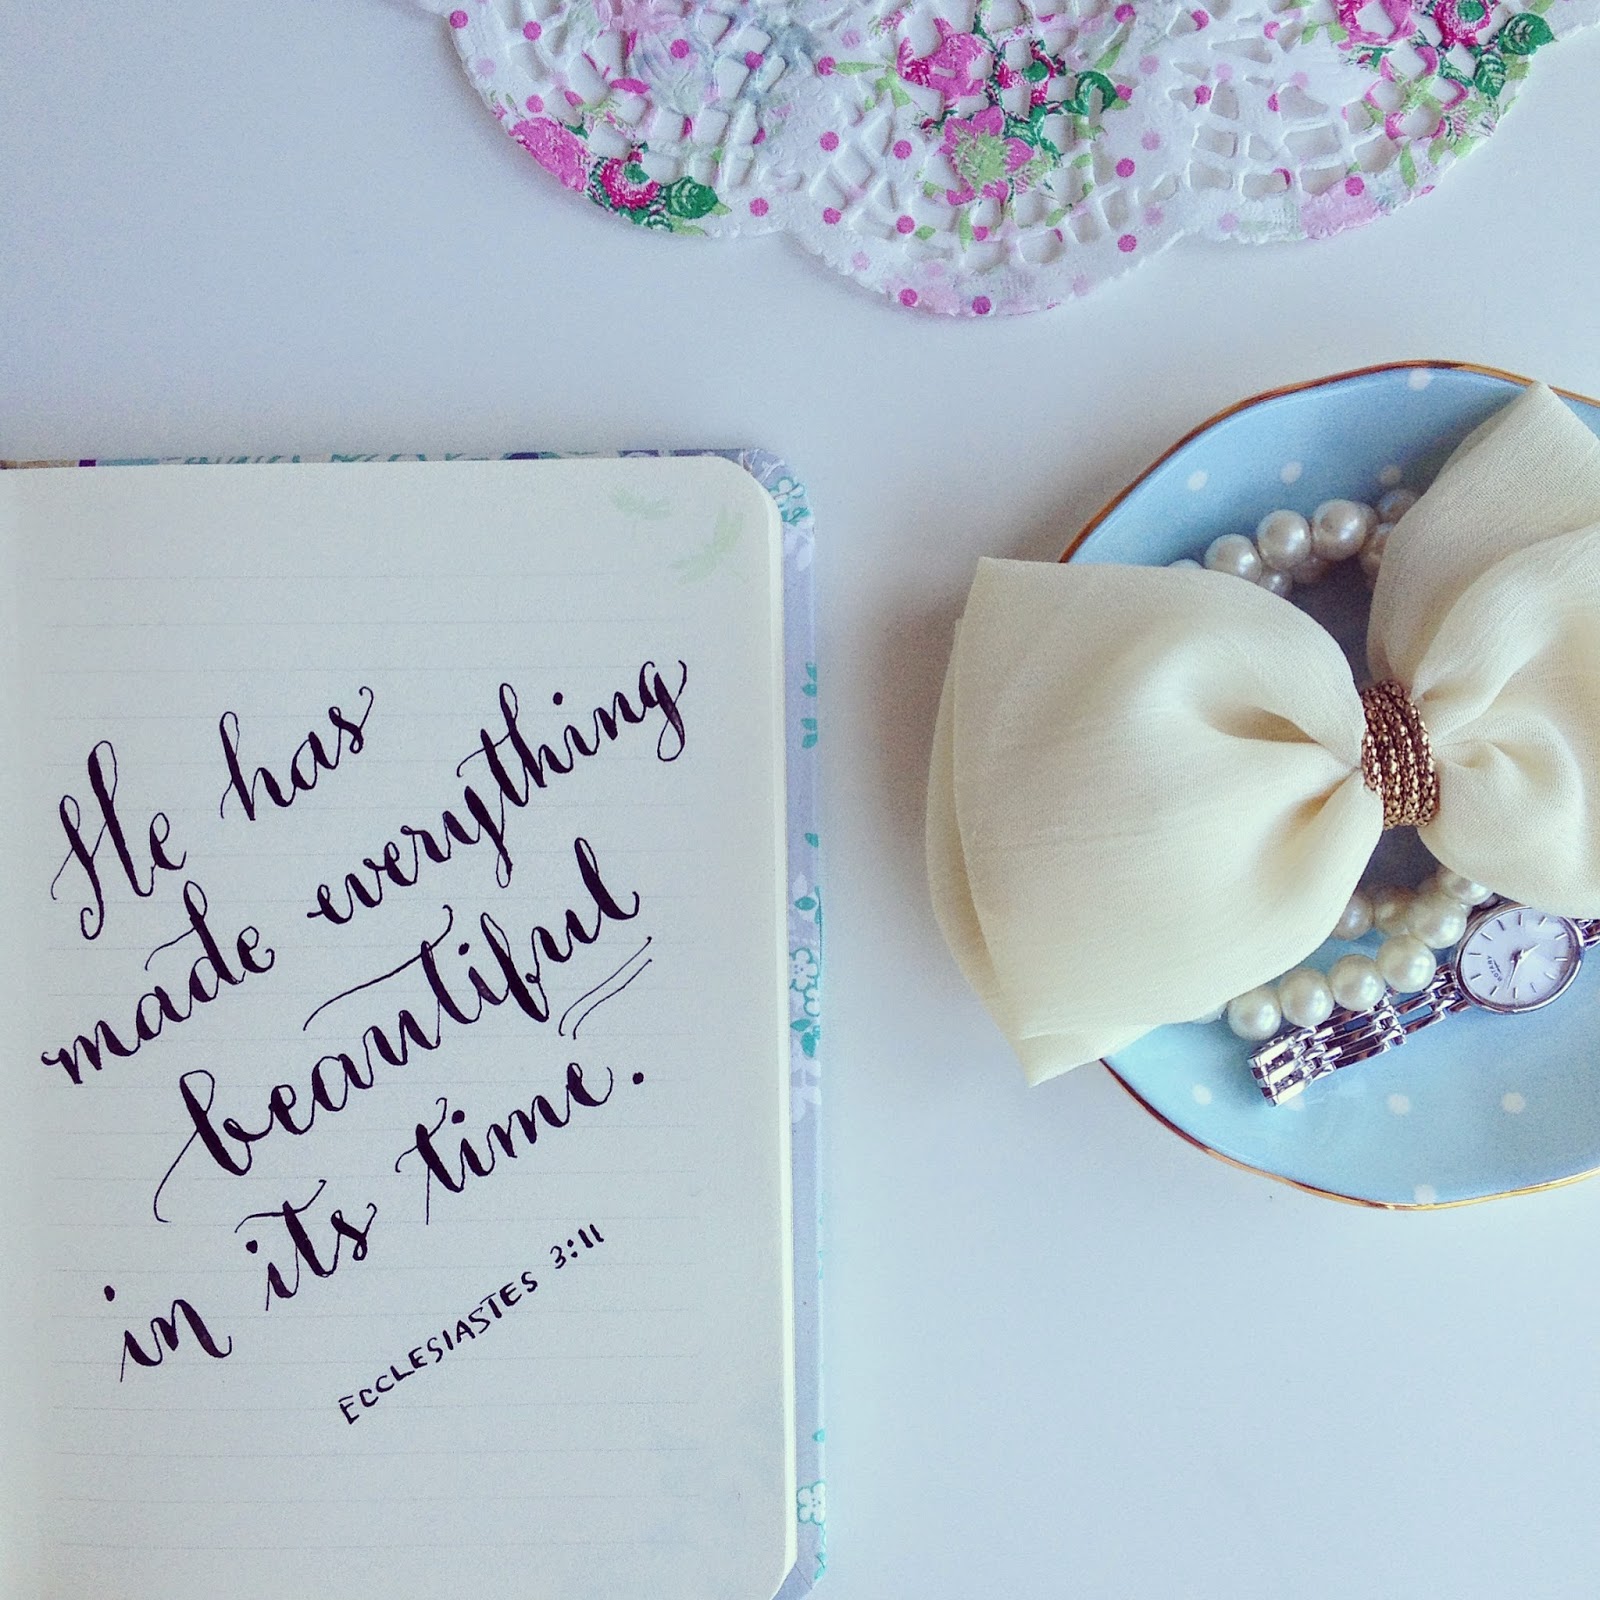 He has
made everything
beautiful
in its time.
ECCLESIASTES 3:11
ROTARY